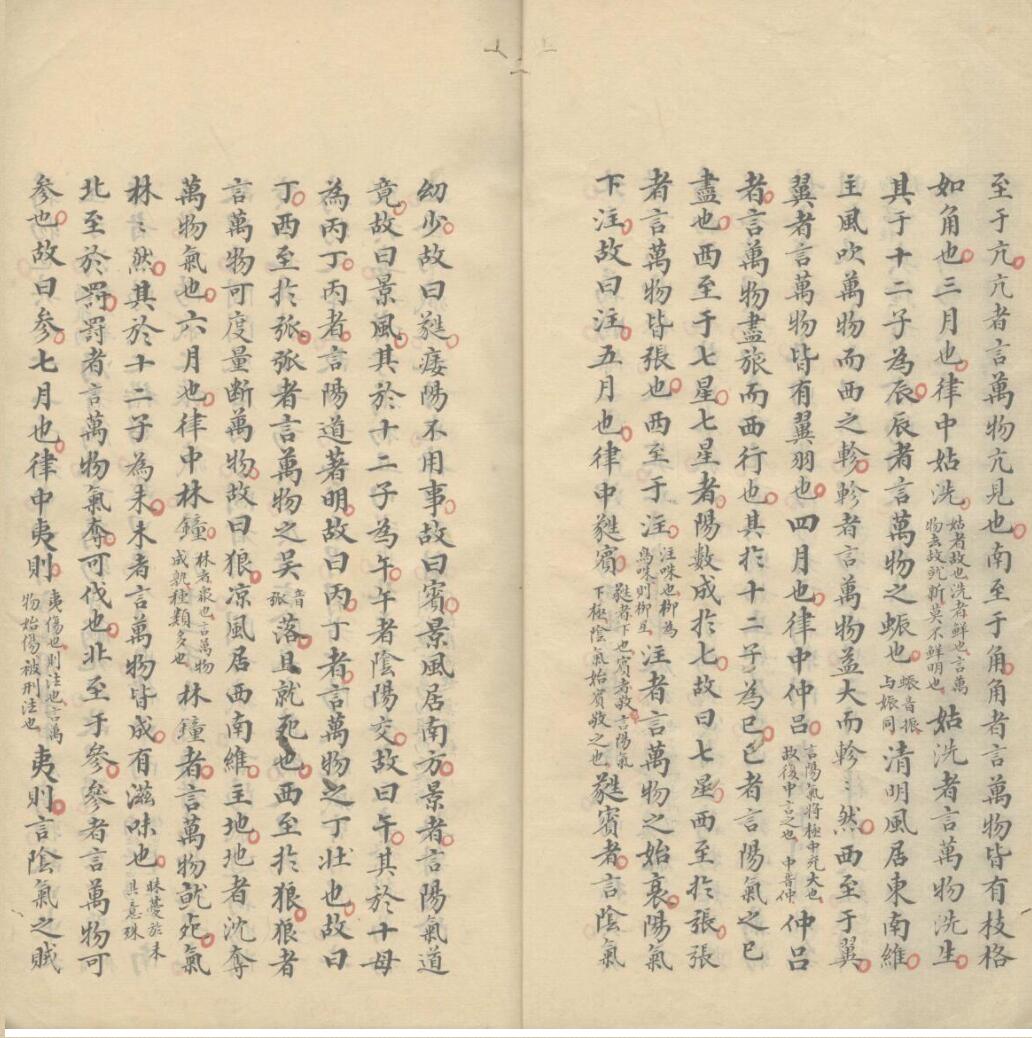 至于亢亢者言萬物亢見也南至于角角者言萬物皆有枝格
如角也三月也律中姑洗姑者故也洗者鮮也言萬物去故就新莫不鮮明也姑洗者言萬物洗生
其于十二子為辰辰者言萬物之蜄也蜄音振与娠同清明風居東南維
主風吹萬物而西之軫軫者言萬物益大而軫〻然西至于翼
翼者言萬物皆有翼羽也四月也律中仲呂言陽氣將極中充大也故復中言之也中音仲仲呂
者言萬物盡旅而西行也其扵十二子為巳巳者言陽氣之巳
盡也西至于七星七星者陽數成扵七故曰七星西至扵張張
者言萬物皆張也西至于注注咮也柳為鳥咮則柳星注者言萬物之始衰陽氣
下注故曰注五月也律中蕤賓蕤者下也賓者敬言陽氣下極陰氣始賓敬之也蕤賓者言陰氣
幼少故曰蕤痿陽不用事故曰賓景風居南方景者言陽氣道
竟故曰景風其於十二子為午午者陰陽交故曰午其於十母
為丙丁丙者言陽道著明故曰丙丁者言萬物之丁壯也故曰
丁西至扵張張者言萬物之吴音張落且就死也西至扵狼狼者
言萬物可度量断萬物故曰狼涼風居西南維主地地者沈奪
萬物氣也六月也律中林鐘林者衆也言萬物成孰種類多也林鐘者言萬物就死氣
林〻然其於十二子為未未者言萬物皆成有滋味也昧薆於未其意殊
北至於罸罸者言萬物氣奪可伐也北至于参参者言萬物可
参也故曰参七月也律中夷則夷傷也則法也言萬物始傷被刑法也夷則言陰氣之賊